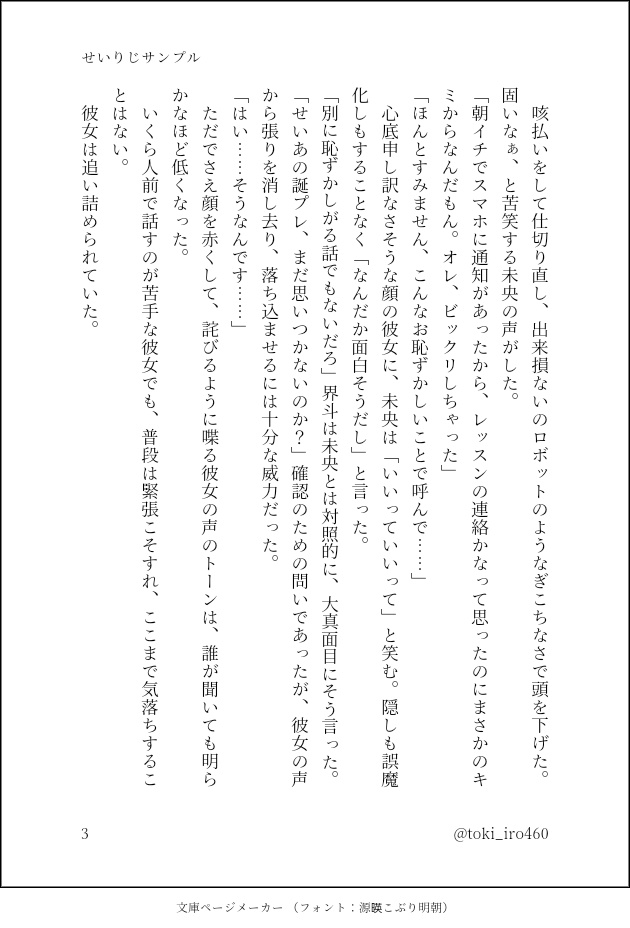 せいりじサンプル
　咳払いをして仕切り直し、出来損ないのロボットのようなぎこちなさで頭を下げた。
固いなぁ、と苦笑する未央の声がした。
「朝イチでスマホに通知があったから、レッスンの連絡かなって思ったのにまさかのキ
ミからなんだもん。オレ、ビックリしちゃった」
「ほんとすみません、こんなお恥ずかしいことで呼んで……」
　心底申し訳なさそうな顔の彼女に、未央は「いいっていいって」と笑む。隠しも誤魔
化しもすることなく「なんだか面白そうだし」と言った。
「別に恥ずかしがる話でもないだろ」界斗は未央とは対照的に、大真面目にそう言った。
「せいあの誕プレ、まだ思いつかないのか？」確認のための問いであったが、彼女の声
から張りを消し去り、落ち込ませるには十分な威力だった。
「はい……そうなんです……」
　ただでさえ顔を赤くして、詫びるように喋る彼女の声のトーンは、誰が聞いても明ら
かなほど低くなった。
　いくら人前で話すのが苦手な彼女でも、普段は緊張こそすれ、ここまで気落ちするこ
とはない。
　彼女は追い詰められていた。
3
@toki_iro460
文庫ページメーカー （フォント：源暎こぶり明朝）